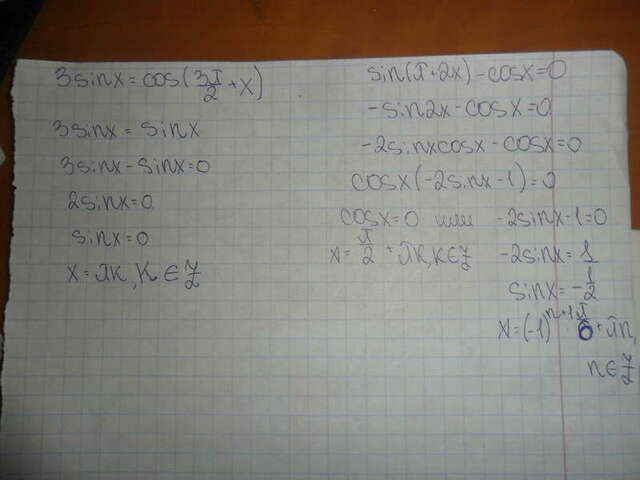 3sinx = cos(3π/2 + x)
3sinx = sinx
3sinx - sinx = 0
2sinx = 0
sinx = 0
x = πк, к ∈ Z
sin(π + 2x) - cosx = 0
-sin2x - cosx = 0
-2sinxcosx - cosx = 0
cosx(-2sinx - 1) = 0
cosx = 0 или -2sinx - 1 = 0
x = π/2 + πк, к ∈ Z
-2sinx = 1
sinx = -1/2
x = (-1)^(n+1) π/6 + πn,
n ∈ Z